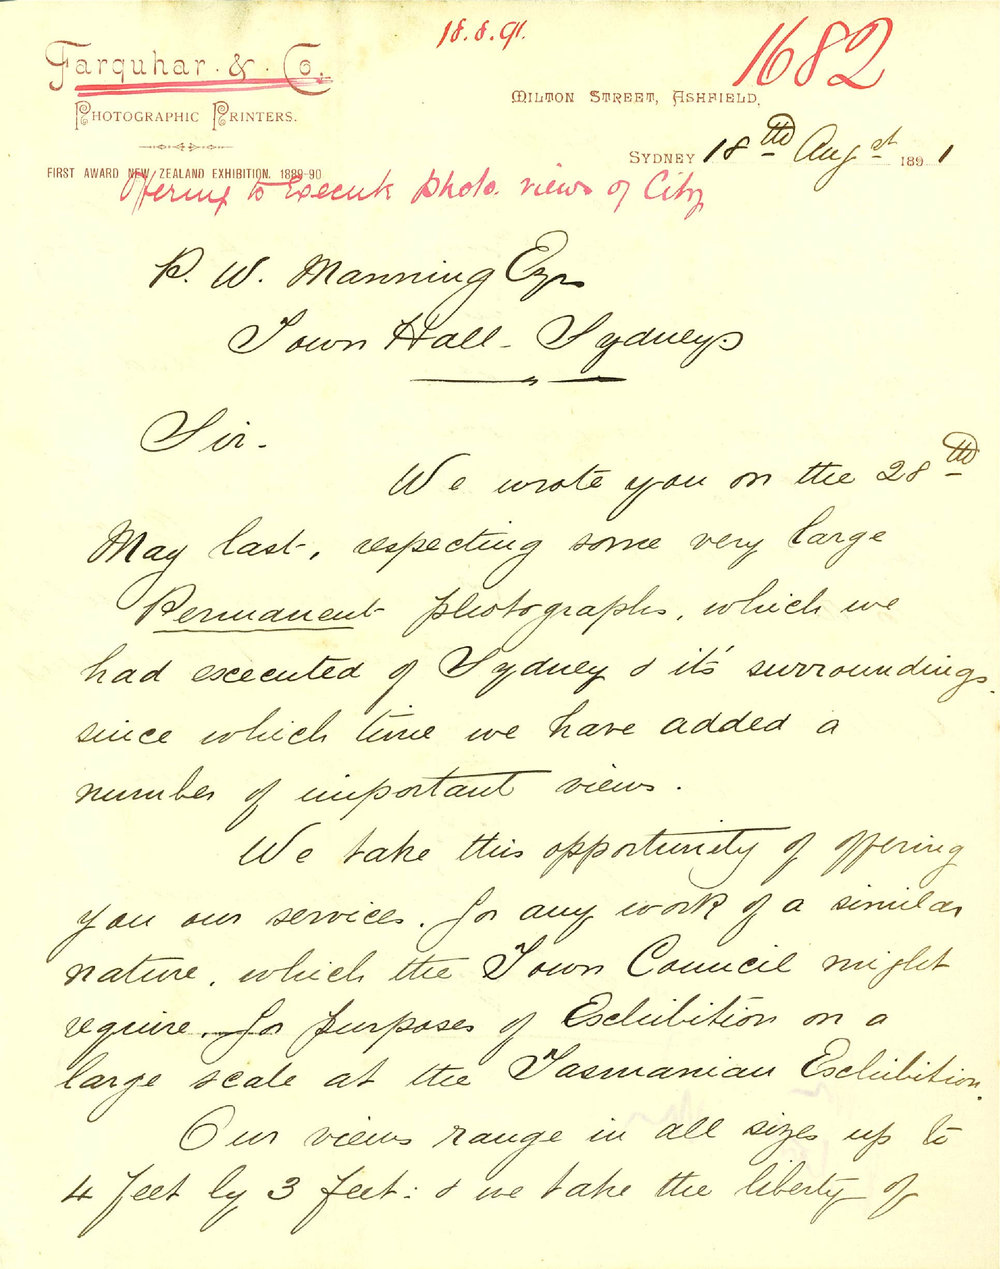 18.8.91.
1682
Farquhar & Co.
Photographic Printers.
First Award New Zealand Exhibition, 1889-90
Milton Street, Ashfield,
Sydney 18th Augst 1891
Offering to Execute photo. views of City
P. W. Manning Esqr
Town Hall - Sydney
Sir -
We wrote you on the 28th
May last, respecting some very large
Permanent photographs, which we
had executed of Sydney & it's surroundings.
since which time we have added a
number of important views.
We take this opportunity of offering
you our services, for any work of a similar
nature, which the Town Council might
require, for purposes of Exhibition on a
large scale at the Tasmanian Exhibition.
Our views range in all sizes up to
4 feet by 3 feet: & we take the liberty of